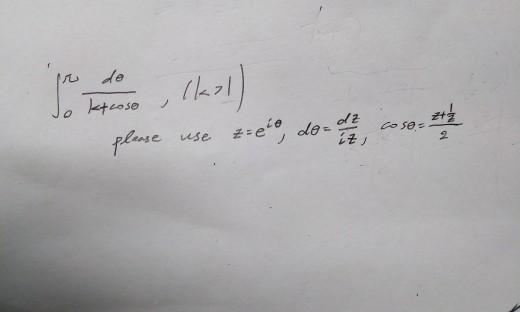 ∫₀^π dθ/(k+cosθ) , (k>1)
please use z=e^{iθ}, dθ = dz/(iz), cosθ = (z+1/z)/2